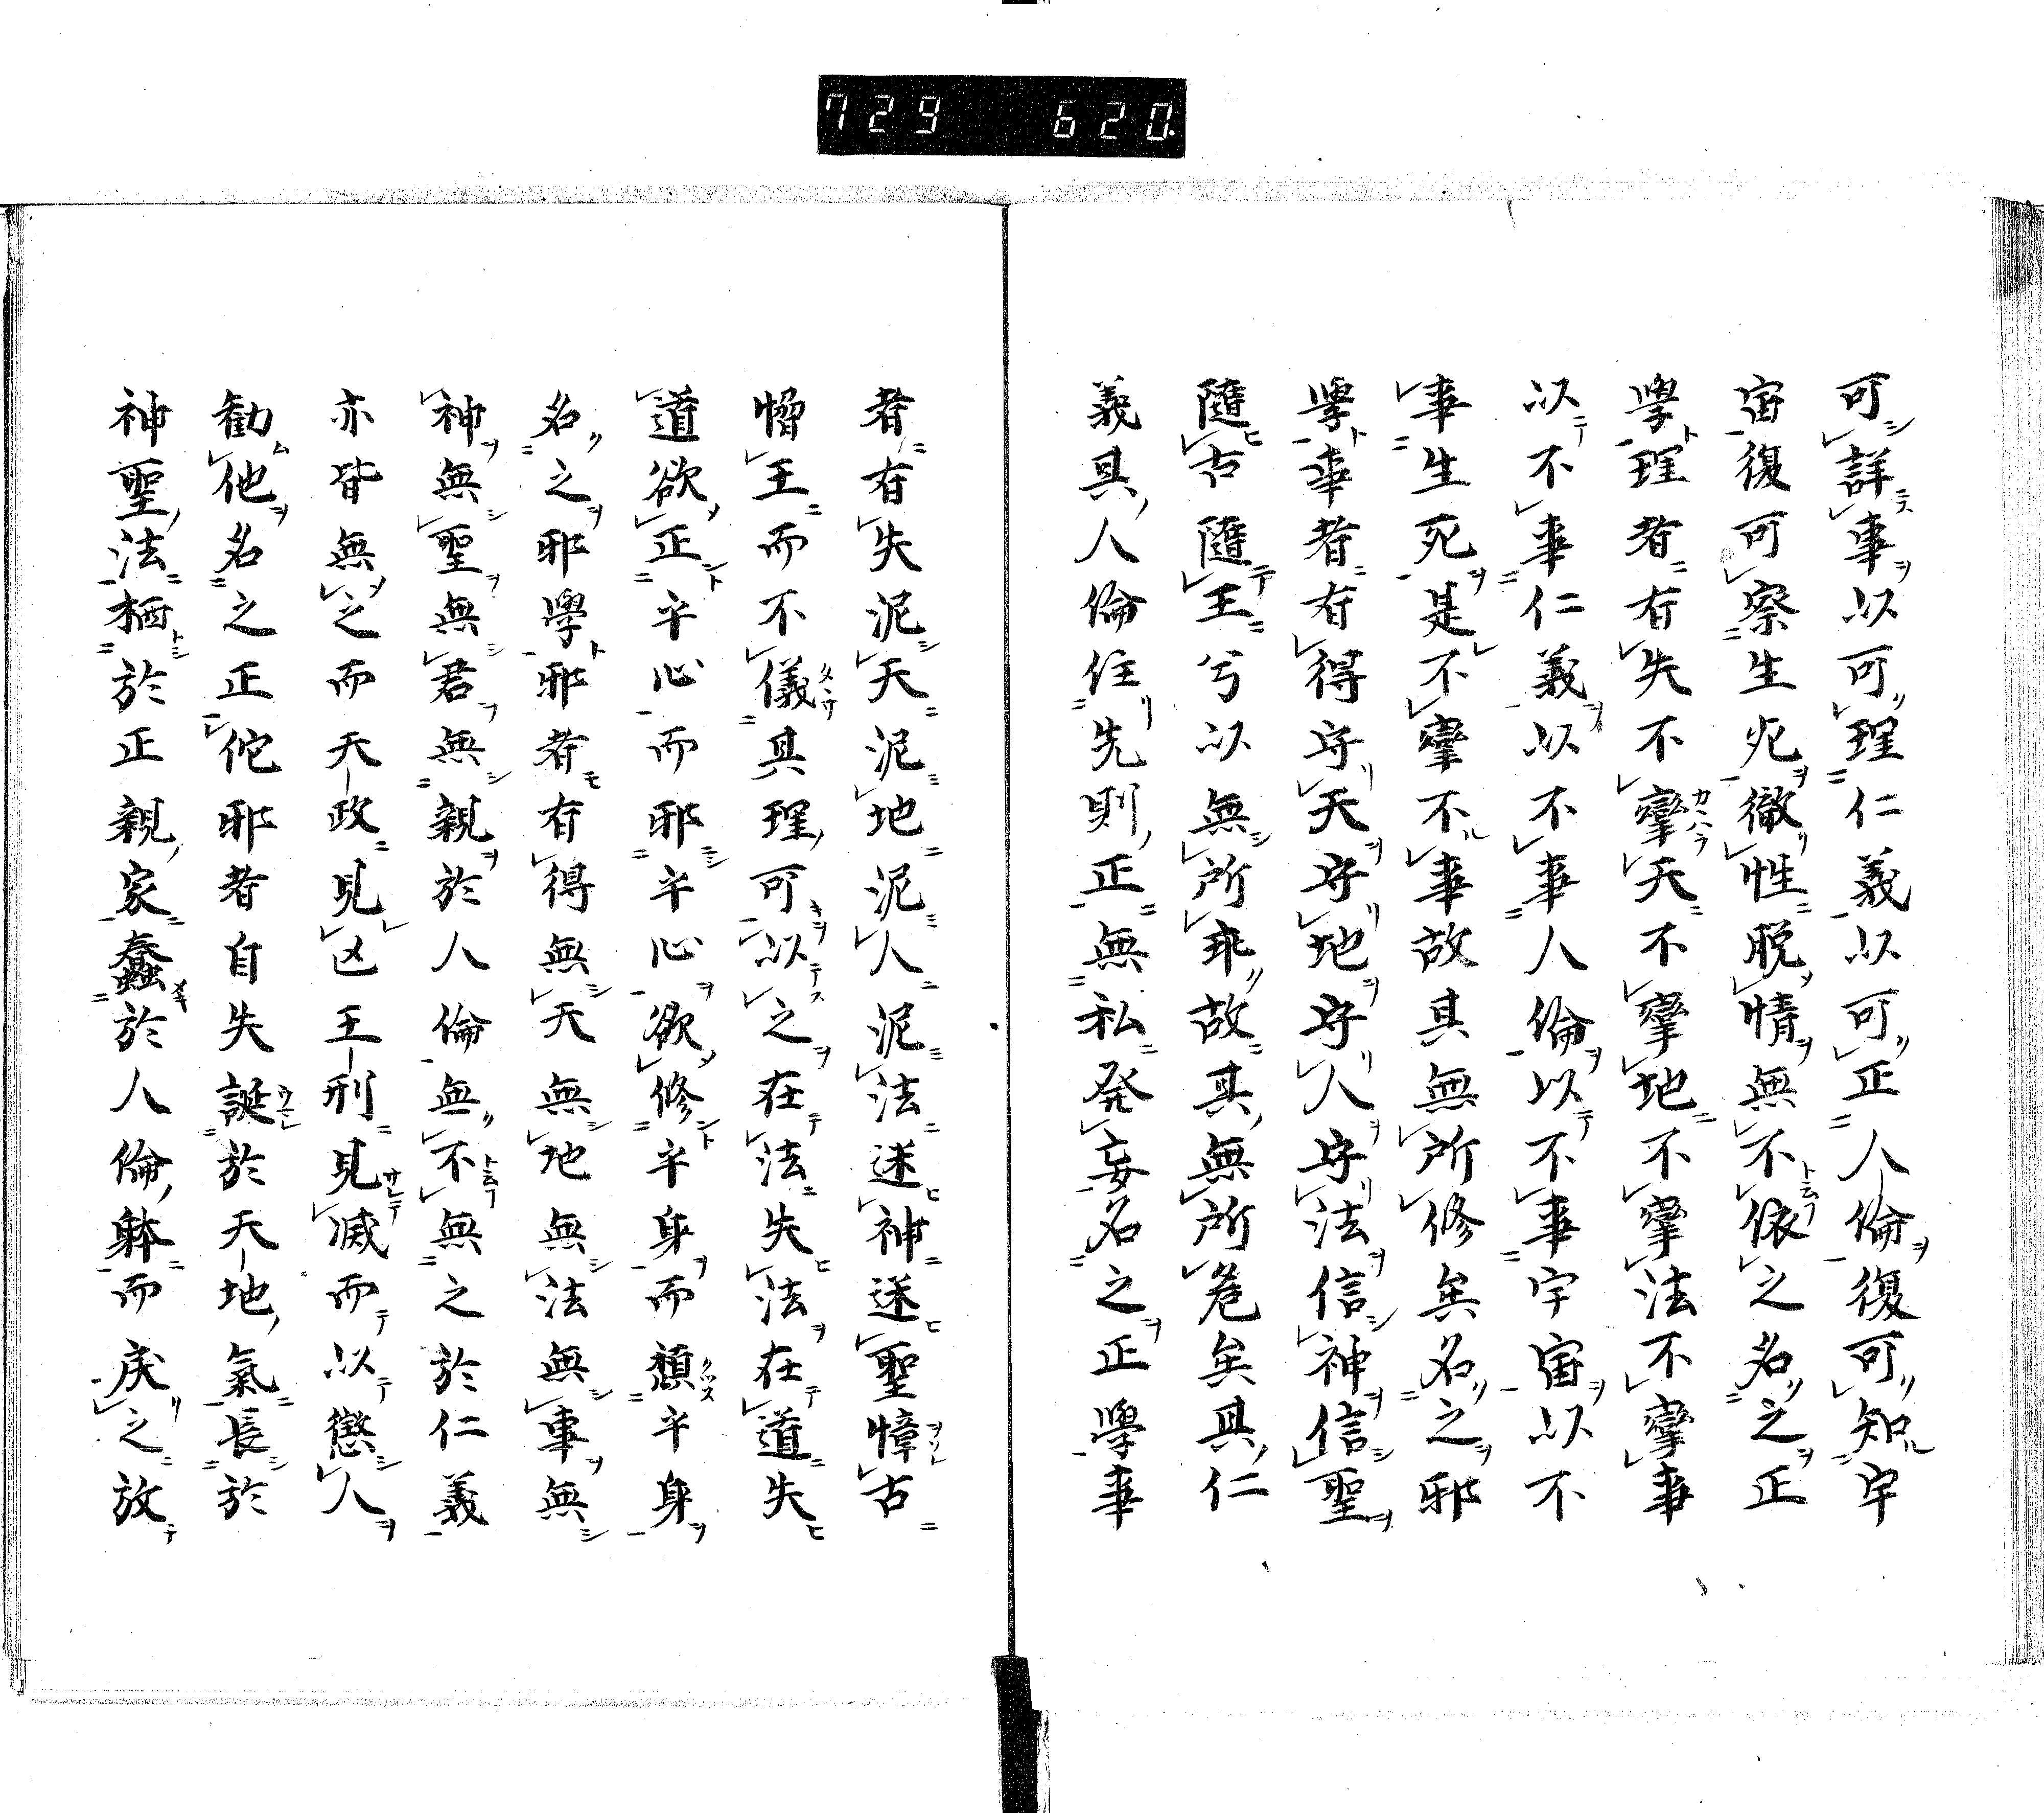 729 620
可詳事以可理仁義以可正人倫復可知宇
宙復可察生死徹性脱情無不依之名之正
學理者有失不攣天不攣地不攣法不攣事
以不事仁義以不事人倫以不事宇宙以不
事生死是不攣不事故其無所修矣名之邪
學事者有得守天守地守人守法信神信聖
隨古隨王兮以無所乖故其無所危矣其仁
義具人倫住先則正無私発妄名之正學事
者有失泥天泥地泥人泥法迷神迷聖憚古
愶王而不儀其理可以之在法失法在道失
道欲正乎心而邪乎心欲修乎身而頽乎身
名之邪學邪者有得無天無地無法無事無
神無聖無君無親於人倫無不無之於仁義
亦皆無之而天政見凶王刑見滅而以懲人
勧他名之正佗邪者自失誕於天地氣長於
神聖法栖於正親家蠢於人倫躰而戻之放